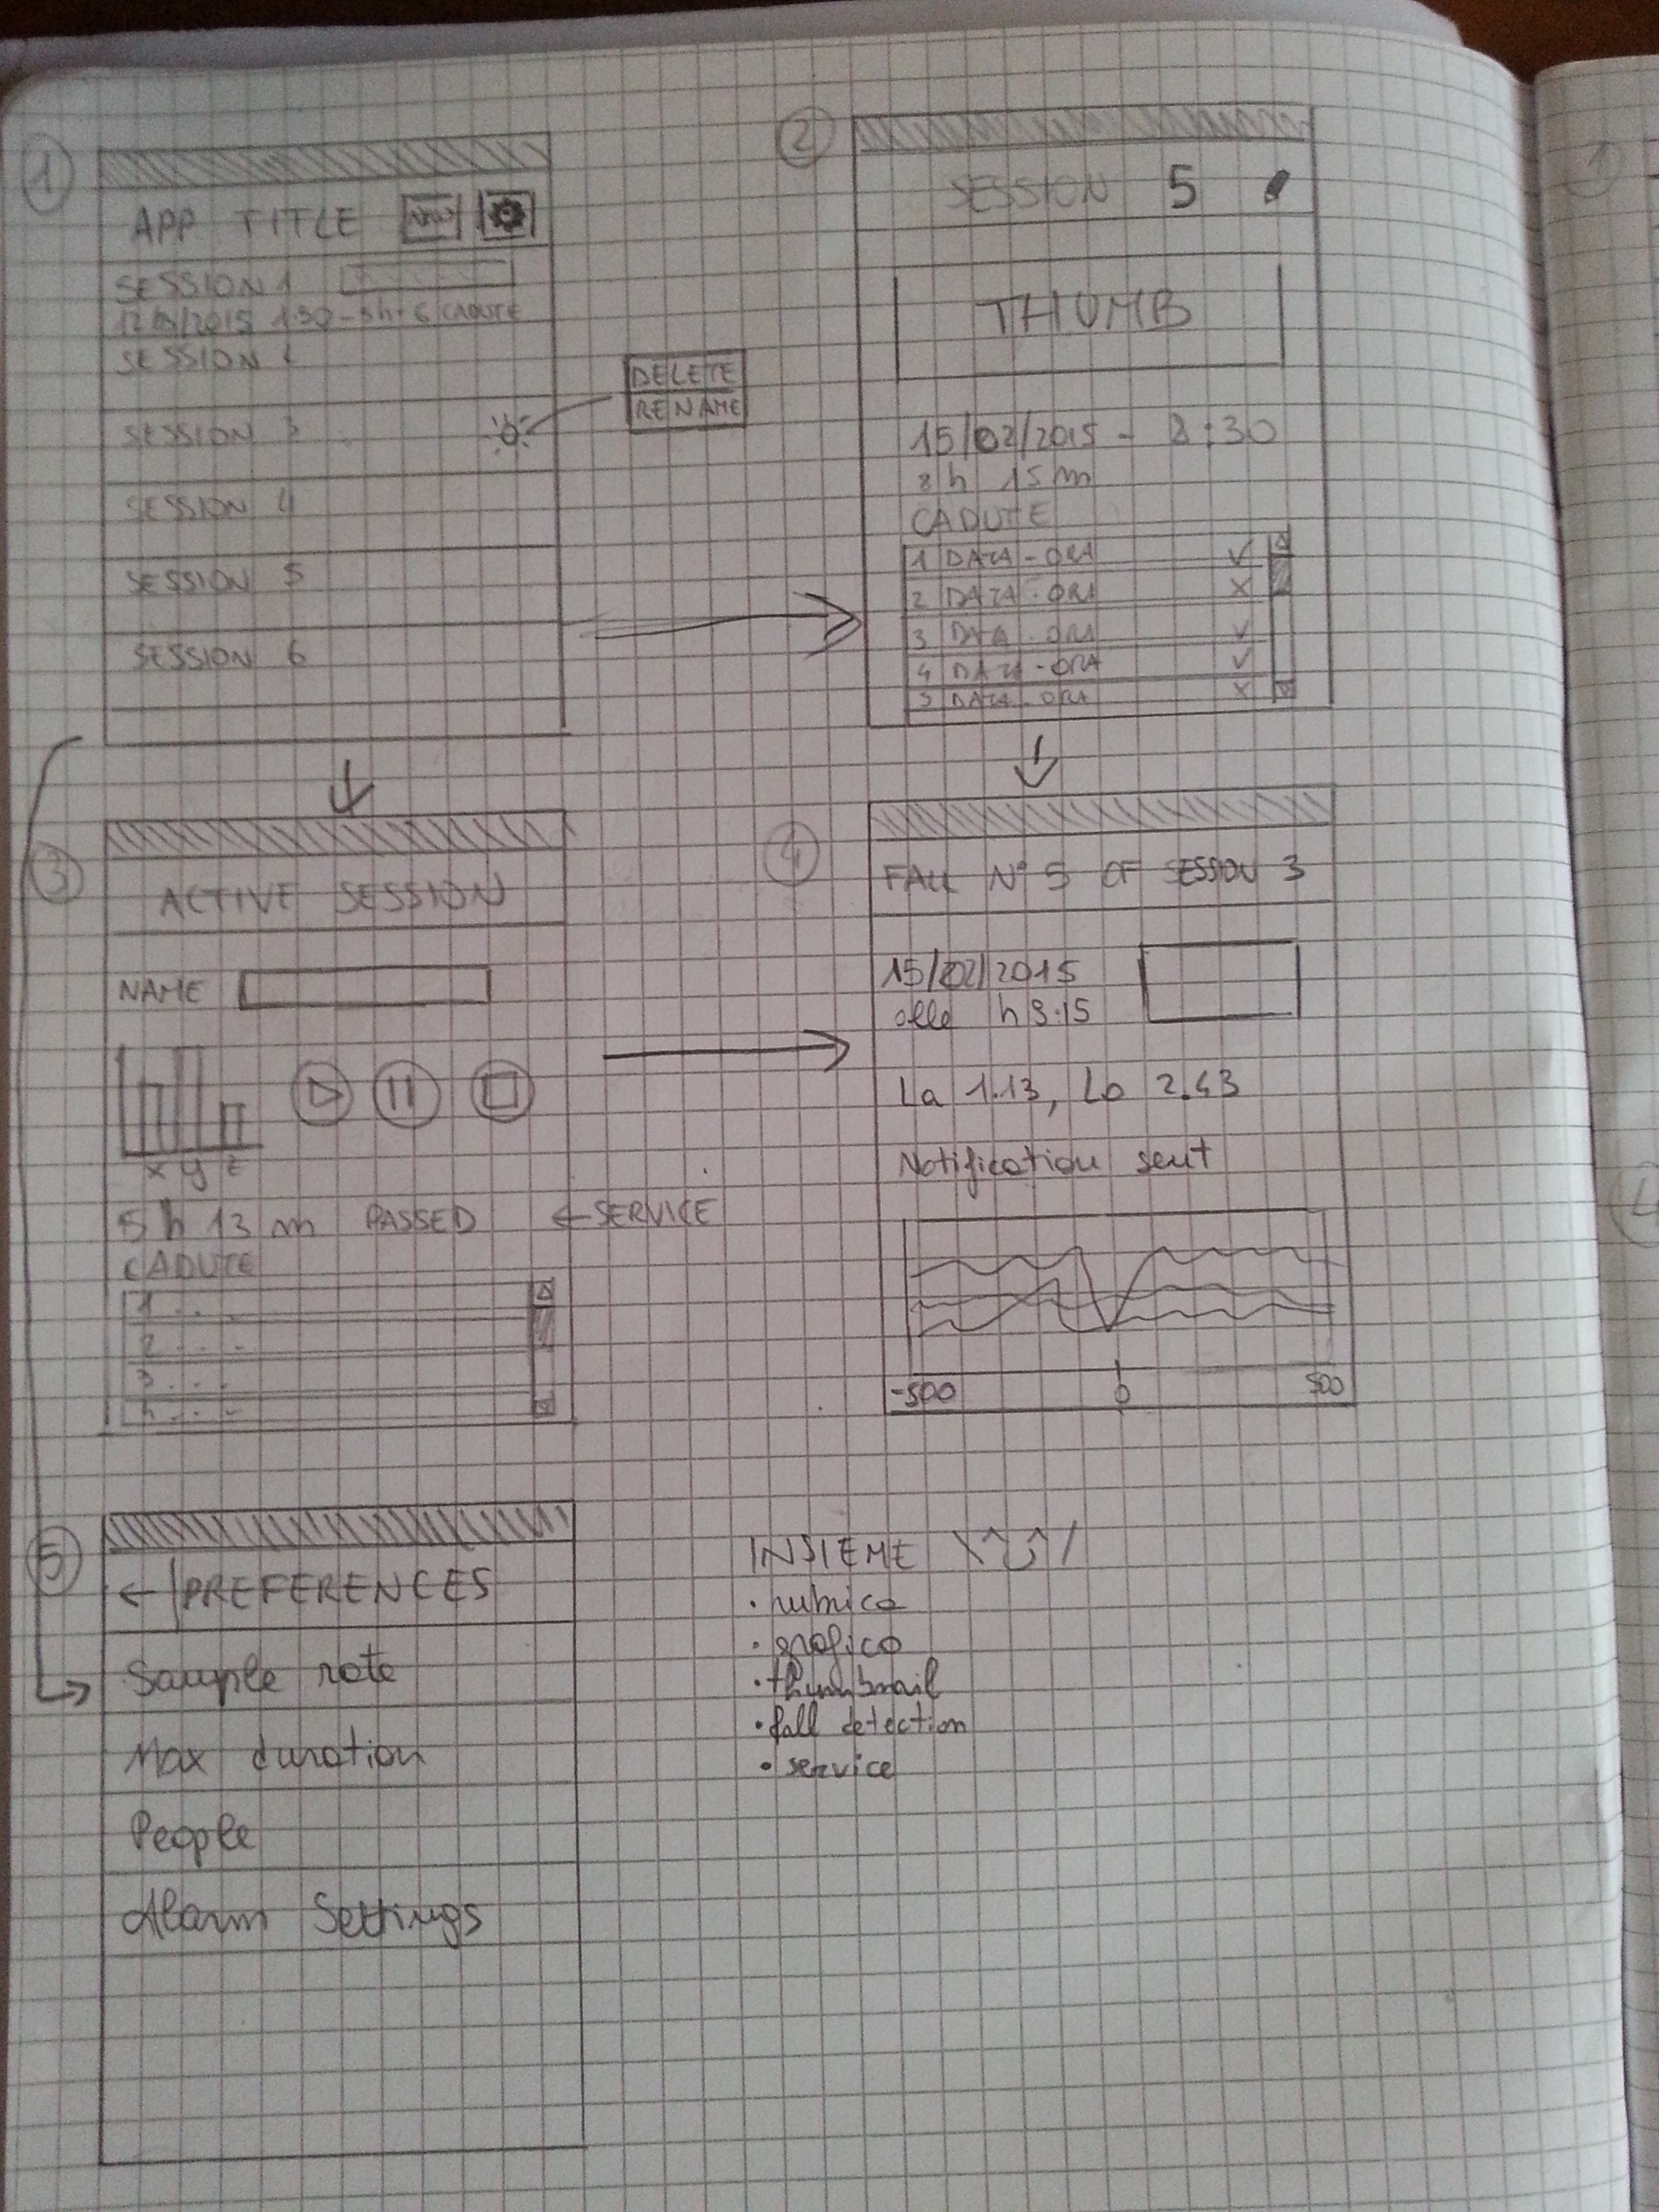 1
APP TITLE NEW
SESSION 1
SESSION
SESSION 3
DELETE
RENAME
SESSION 4
SESSION 5
SESSION 6
2
SESSION 5
THUMB
15/02/2015 - 8:30
8h 15m
CADUTE
1 DATA - ORA ✓
2 DATA - ORA X
3 DATA - ORA ✓
4 DATA - ORA ✓
5 DATA - ORA X
3
ACTIVE SESSION
NAME
x y z
5h 13m PASSED ← SERVICE
CADUTE
1 . . .
2 . . .
3 . . .
4
FALL N° 5 OF SESSION 3
15/02/2015
alle h 3:15
La 1.13, Lo 2.43
Notification sent
-500 0 500
5
← PREFERENCES
Sample rate
Max duration
People
Alarm Settings
INSIEME \^U^/
• rubrica
• grafico
• thumbnail
• fall detection
• service